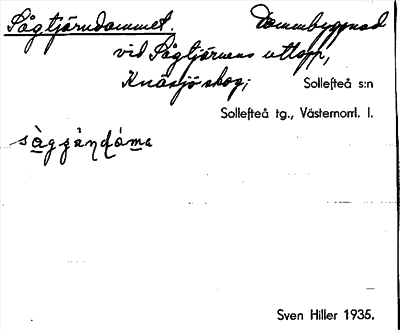 Sågtjärndammet. Dammbyggnad
vid Sågtjärnens utlopp,
Knäsjö skog; Sollefteå s:n
Sollefteå tg., Västernorrl. l.
sàggàndáma
Sven Hiller 1935.